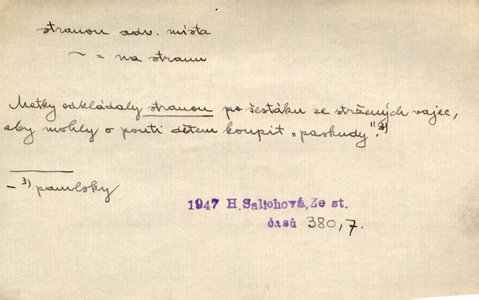 stranou adv. místa
~ = na stranu
Matky odkládaly stranou po šestáku ze stržených vajec,
aby mohly o pouti dětem koupit „paskudy".³)
— ³) pamlsky
1947 H. Salichová, Ze st.
časů 380,7.